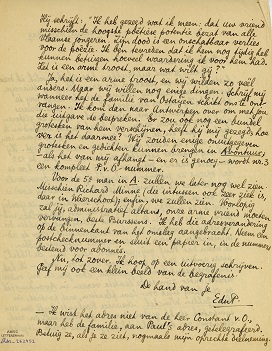 Hij schrijft: "Ik heb gezegd wat ik meen: dat uw vriend
misschien de hoogste poëtiese potentie bezat van alle
Vlaamse jongeren; zijn dood is een onschatbaar verlies
voor de poëzie. Ik ben tevreden dat ik hem nog tijdig heb
kunnen betuigen hoeveel waardering ik voor hem had.
Het is een arme troost, maar wat wilt gij?"
Ja, het is een arme troost, en wij wilden zo veel
anders. Maar wij willen nog enige dingen. Schrijf mij
wanneer het de familie van Ostaijen schikt ons te ont-
vangen. Ik kom dan naar Antwerpen over om met jou
die uitgave de bespreken. Er zou ook nog een bundel
grotesken van hem verschijnen, heeft hij mij gezegd, hoe
ver is het daarmee? Wij zouden enige onuitgegeven
grotesken en gedichten kunnen brengen in Avontuur,
als het van mij afhangt en er is genoeg wordt nr. 3
een kompleet P.v.O.-nummer.
Voor de 5e man in A. zullen we later nog wel zien.
Misschien Richard Minne (die intussen ook zeer ziek is,
daar in Waerschoot) enfin, we zullen zien. Voorlopig
zal jij, administratief althans, onze arme vriend moeten
vervangen, beste Burssens. Ik heb die adresverandering
op de binnenkant van het omslag aangebracht. Neem een
postcheknummer en sluit een papier in, in de nummers
bestemd voor abonnés.
Nu, tot zover. Ik hoop op een uitvoerig schrijven.
Geef mij ook een klein beeld van de begrafenis.
De hand van je
EduP.
Ik wist het adres niet van de heer Constant v.O.,
maar heb de familie, aan Paul's adres, getelegrafeerd.
Betuig ze, als je ze ziet, nogmaals mijn oprechte deelneming